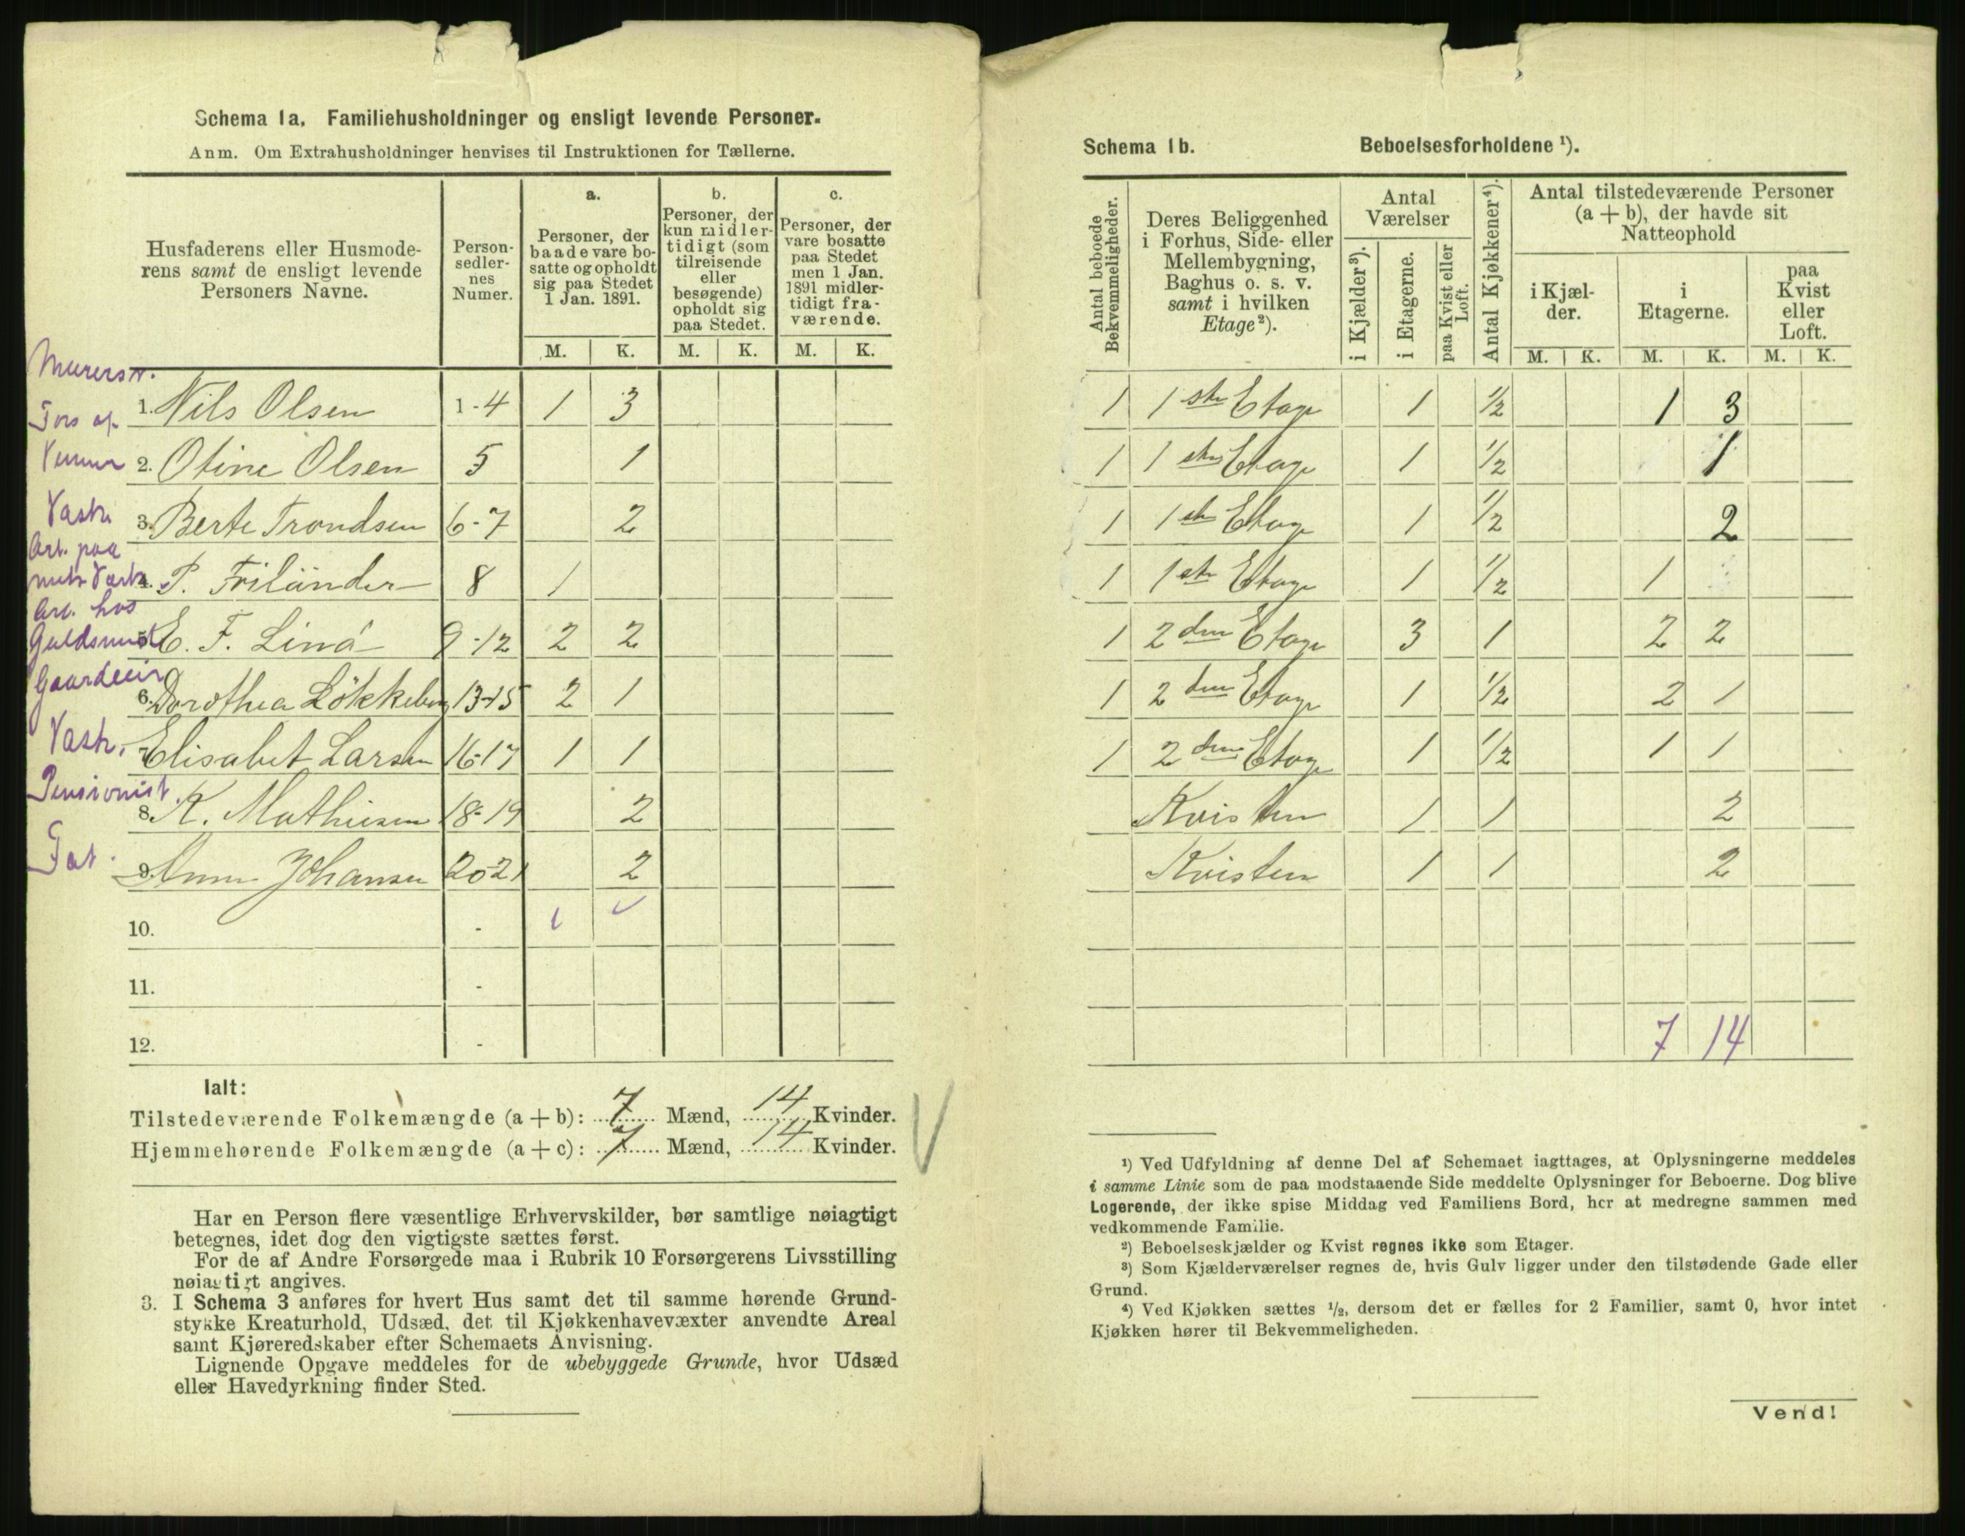 Schema 1a. Familiehusholdninger og ensligt levende Personer.
Anm. Om Extrahusholdninger henvises til Instruktionen for Tællerne.
Husfaderens eller Husmoderens samt de ensligt levende Personers Navne.
Personsedlernes Numer.
a. Personer, der baade vare bosatte og opholdt sig paa Stedet 1 Jan. 1891.
b. Personer, der kun midlertidigt (som tilreisende eller besøgende) opholdt sig paa Stedet.
c. Personer, der vare bosatte paa Stedet men 1 Jan. 1891 midlertidigt fraværende.
M. K. M. K. M. K.
Murerst.
1. Nils Olsen 1-4 1 3
Fors af
2. Otine Olsen 5 1
Vask.
3. Berte Trondsen 6-7 2
Arb. paa
4. P. Friländer 8 1
Arb. hos
Guldsmed
5. E. F. Liná 9-12 2 2
Gaardeier
6. Dorothea Lökkeberg 13-15 2 1
Vask.
7. Elisabet Larsen 16-17 1 1
Pensionist.
8. K. Mathiesen 18-19 2
Fat.
9. Anna Johansen 20-21 2
10. -
11. -
12. -
Ialt:
Tilstedeværende Folkemængde (a + b): 7 Mænd, 14 Kvinder.
Hjemmehørende Folkemængde (a + c): 7 Mænd, 14 Kvinder.
Har en Person flere væsentlige Erhvervskilder, bør samtlige nøiagtigt
betegnes, idet dog den vigtigste sættes først.
For de af Andre Forsørgede maa i Rubrik 10 Forsørgerens Livsstilling
nøiagtigt angives.
3. I Schema 3 anføres for hvert Hus samt det til samme hørende Grund-
stykke Kreaturhold, Udsæd, det til Kjøkkenhavevæxter anvendte Areal
samt Kjøreredskaber efter Schemaets Anvisning.
Lignende Opgave meddeles for de ubebyggede Grunde, hvor Udsæd
eller Havedyrkning finder Sted.
Schema 1b. Beboelsesforholdene ¹).
Antal beboede Bekvemmeligheder.
Deres Beliggenhed i Forhus, Side- eller Mellembygning, Baghus o. s. v. samt i hvilken Etage ²).
Antal Værelser
i Kjælder ³).
i Etagerne.
paa Kvist eller Loft.
Antal Kjøkkener ⁴).
Antal tilstedeværende Personer (a + b), der havde sit Natteophold
i Kjælder.
i Etagerne.
paa Kvist eller Loft.
M. K. M. K. M. K.
1 1ste Etage 1 1/2 1 3
1 1ste Etage 1 1/2 1
1 1ste Etage 1 1/2 2
1 1ste Etage 1 1/2 1
1 2den Etage 3 1 2 2
1 2den Etage 1 1/2 2 1
1 2den Etage 1 1/2 1 1
Kvisten 1 1 2
Kvisten 1 1 2
7 14
¹) Ved Udfyldning af denne Del af Schemaet iagttages, at Oplysningerne meddeles
i samme Linie som de paa modstaaende Side meddelte Oplysninger for Beboerne. Dog blive
Logerende, der ikke spise Middag ved Familiens Bord, her at medregne sammen med
vedkommende Familie.
²) Beboelseskjælder og Kvist regnes ikke som Etager.
³) Som Kjælderværelser regnes de, hvis Gulv ligger under den tilstødende Gade eller
Grund.
⁴) Ved Kjøkken sættes 1/2, dersom det er fælles for 2 Familier, samt 0, hvor intet
Kjøkken hører til Bekvemmeligheden.
Vend!